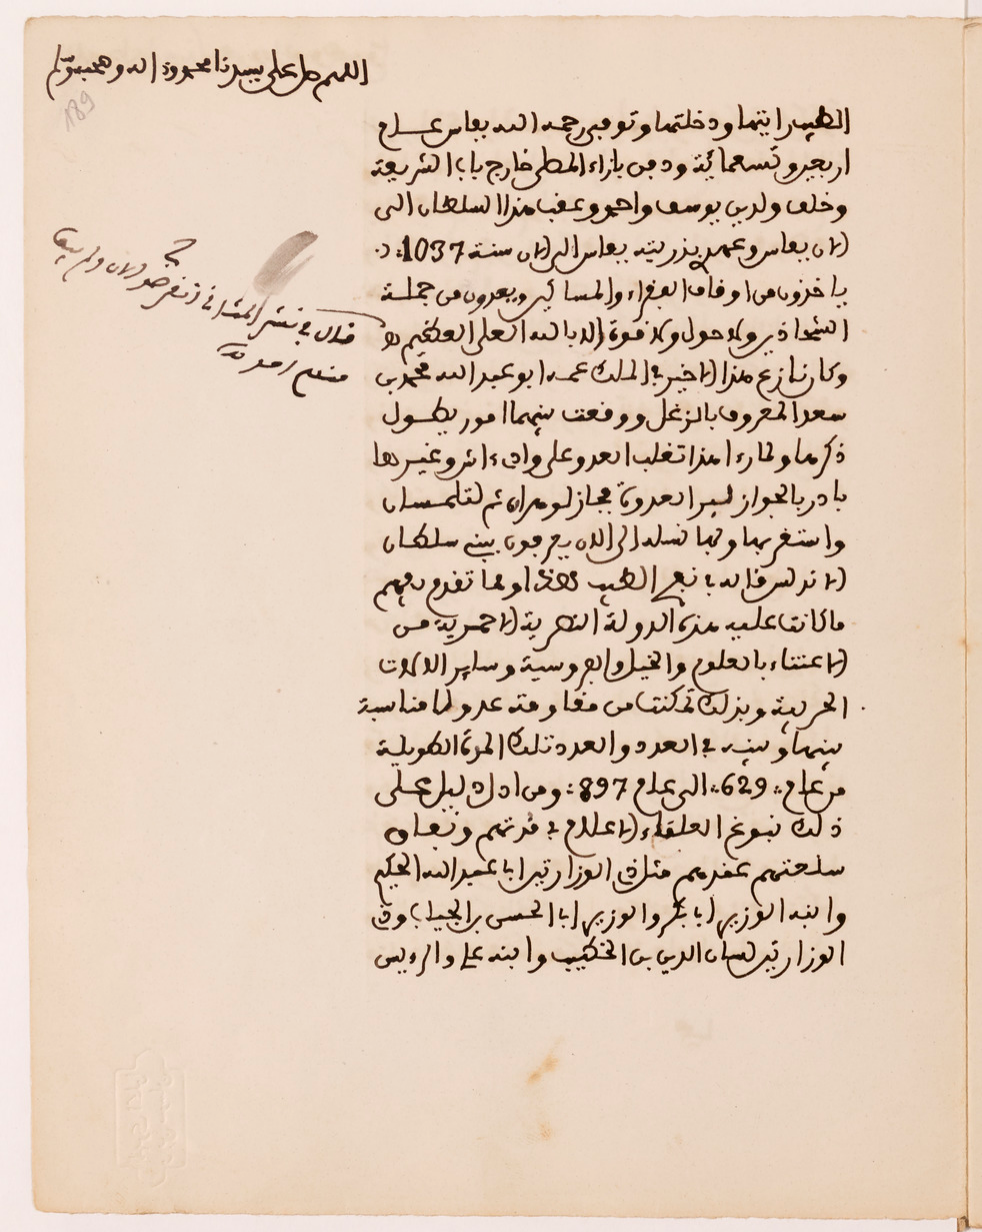 اللهم صل على سيدنا محمد وءاله وصحبه وسلم
189
الطيب رايتها ودخلتها وتوفي رحمه الله بفاس عام
اربعين وتسعمائة ودفن بازاء المصلى خارج باب الشريعة
وخلف ولدين يوسف واحمد وعقب هذا السلطان الى
الان بفاس وعهدي بذريته بفاس الى الان سنة 1037:
ياخذون من اوقاف الفقراء والمساكين ويعدون من جملة
الشحاذين ولا حول ولا قوة الا بالله العلي العظيم هـ
وكان نازع هذا الاخير في الملك عمه ابو عبد الله محمد بن
سعد المعروف بالزغل ووقعت بينهما امور يطول
ذكرها ولما رءا هذا تغلب العدو على وادي ءاش وغيرها
بادر بالجواز لبر العدوة فجاز لوهران ثم لتلمسان
واستقر بها وبها نسله الى الان يعرفون ببني سلطان
الاندلس قاله في نفح الطيب او لما تقدم يفهم
ما كانت عليه هذه الدولة النصرية الاحمرية من
الاعتناء بالعلوم والخيل والفروسية وساير الالات
الحربية وبذلك تمكنت من مقاومة عدو لا مناسبة
بينها وبينه في العدد والعدد تلك المدة الطويلة
من عام: 629: الى عام 897: ومن ادل دليل على
ذلك نبوغ العلماء الاعلام في مدتهم ونفاق
سلعتهم عندهم مثل ذي الوزارتين ابا عبد الله الحكيم
وابنه الوزير ابا بكر والوزير ابا الحسن بن الجياب وذي
الوزارتين لسان الدين بن الخطيب وابنه علي والرءيس
قال في نشر المثاني